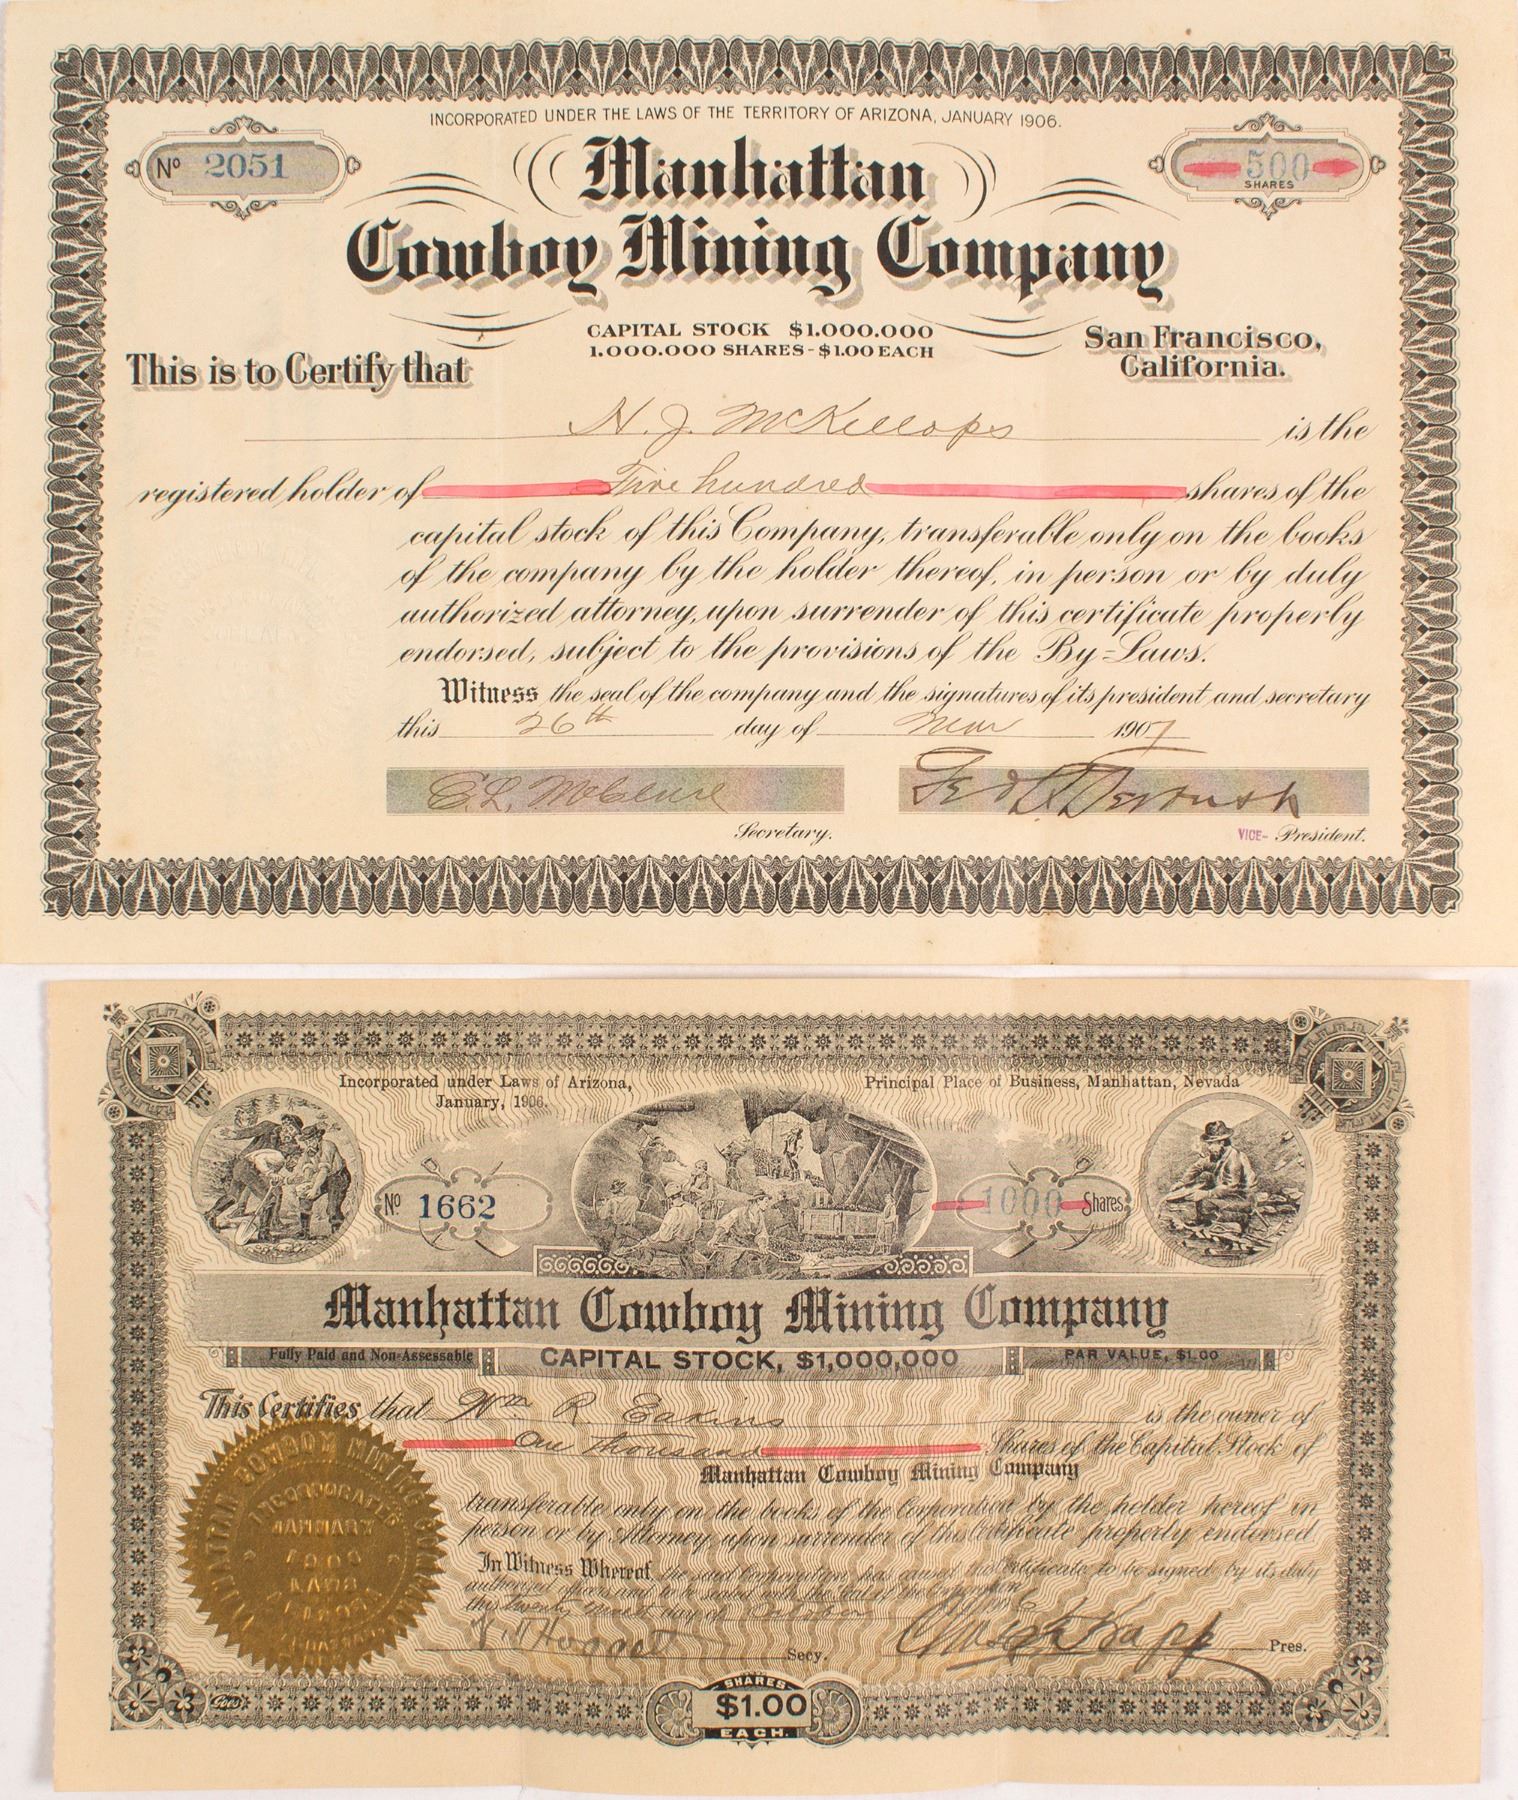 INCORPORATED UNDER THE LAWS OF THE TERRITORY OF ARIZONA, JANUARY 1906.
No 2051
Manhattan
500
SHARES
Cowboy Mining Company
CAPITAL STOCK $1.000.000
1.000.000 SHARES - $1.00 EACH
San Francisco,
California.
This is to Certify that
N. J. McKillops is the
registered holder of Five hundred shares of the
capital stock of this Company, transferable only on the books
of the company by the holder thereof, in person or by duly
authorized attorney, upon surrender of this certificate properly
endorsed, subject to the provisions of the By-Laws.
Witness the seal of the company and the signatures of its president and secretary
this 26th day of Mar 1907
E. L. McClure
Secretary.
VICE- President.
Incorporated under Laws of Arizona,
January, 1906.
Principal Place of Business, Manhattan, Nevada
No 1662
1000 Shares
Manhattan Cowboy Mining Company
Fully Paid and Non-Assessable
CAPITAL STOCK, $1,000,000
PAR VALUE, $1.00
This Certifies that Wm R. Eakins is the owner of
One thousand Shares of the Capital Stock of
Manhattan Cowboy Mining Company
transferable only on the books of the Corporation by the holder hereof in
person or by Attorney upon surrender of this Certificate properly endorsed
In Witness Whereof, the said Corporation has caused this Certificate to be signed by its duly
authorized officers and to be sealed with the Seal of the Corporation
this twenty day of October 6
Secy.
Pres.
MANHATTAN COWBOY MINING COMPANY
INCORPORATED
JANUARY
1906
LAWS
SHARES
$1.00
EACH.